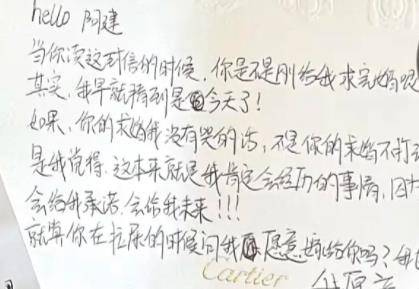 hello 阿建
当你读这封信的时候，你是不是刚给我求完婚呢
其实，我早就猜到是今天了！
如果，你的求婚我没有哭的话，不是你的求婚不打
是我觉得，这本来就是我肯定会经历的事情，因为
会给我承诺，会给我未来！！！
就算你在拉尿的时候问我愿意嫁给你吗？我
Cartier